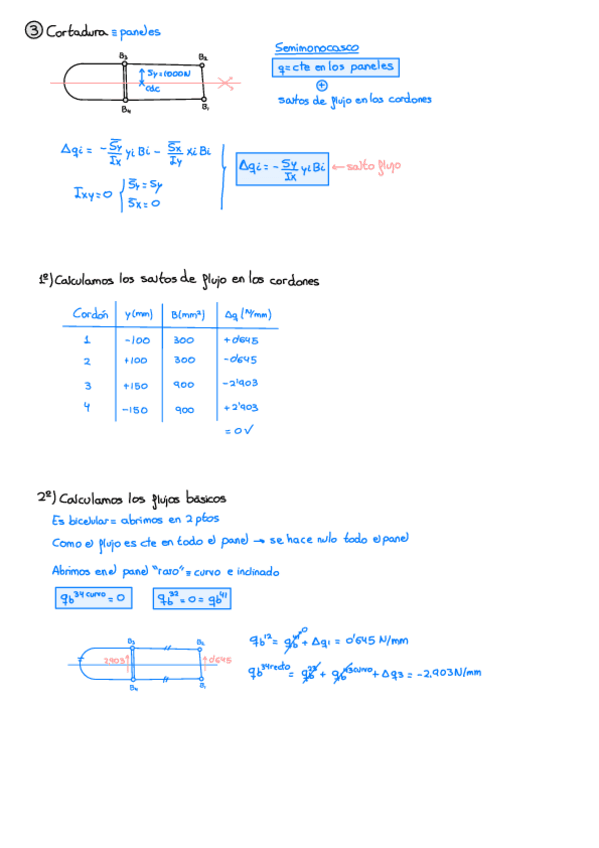 ③ Cortadura ≡ paneles
B3
B2
Sy=1000N
cdc
B4
B1
Semimonocasco
q=cte en los paneles
⊕
saltos de flujo en los cordones
Δqi = - S̄y/Ix yi Bi - S̄x/Iy xi Bi
Ixy=0 { S̄y = Sy
S̄x = 0
Δqi = - Sy/Ix yi Bi ← salto flujo
1º) Calculamos los saltos de flujo en los cordones
Cordón y(mm) B(mm²) Δq (N/mm)
1 -100 300 +0'645
2 +100 300 -0'645
3 +150 900 -2'903
4 -150 900 +2'903
= 0 ✓
2º) Calculamos los flujos básicos
Es bicelular = abrimos en 2 ptos
Como el flujo es cte en todo el panel → se hace nulo todo el panel
Abrimos en el panel "raro" = curvo e inclinado
qb³⁴ curvo = 0
qb³² = 0 = qb⁴¹
B3
B2
2903
0'645
B4
B1
qb¹² = qb⁴¹ + Δq1 = 0'645 N/mm
qb³⁴ recto = qb²³ + qb⁴³ curvo + Δq3 = -2.903 N/mm